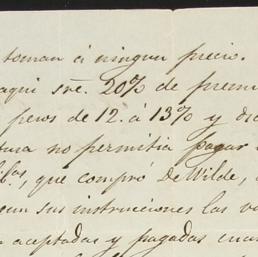 toman á ningun precio.
aqui sre. 20% de premi
pesos de 12. á 13% y di
no permitia pagar
que compró DeWilde,
sus instrucciones las
aceptadas y pagadas